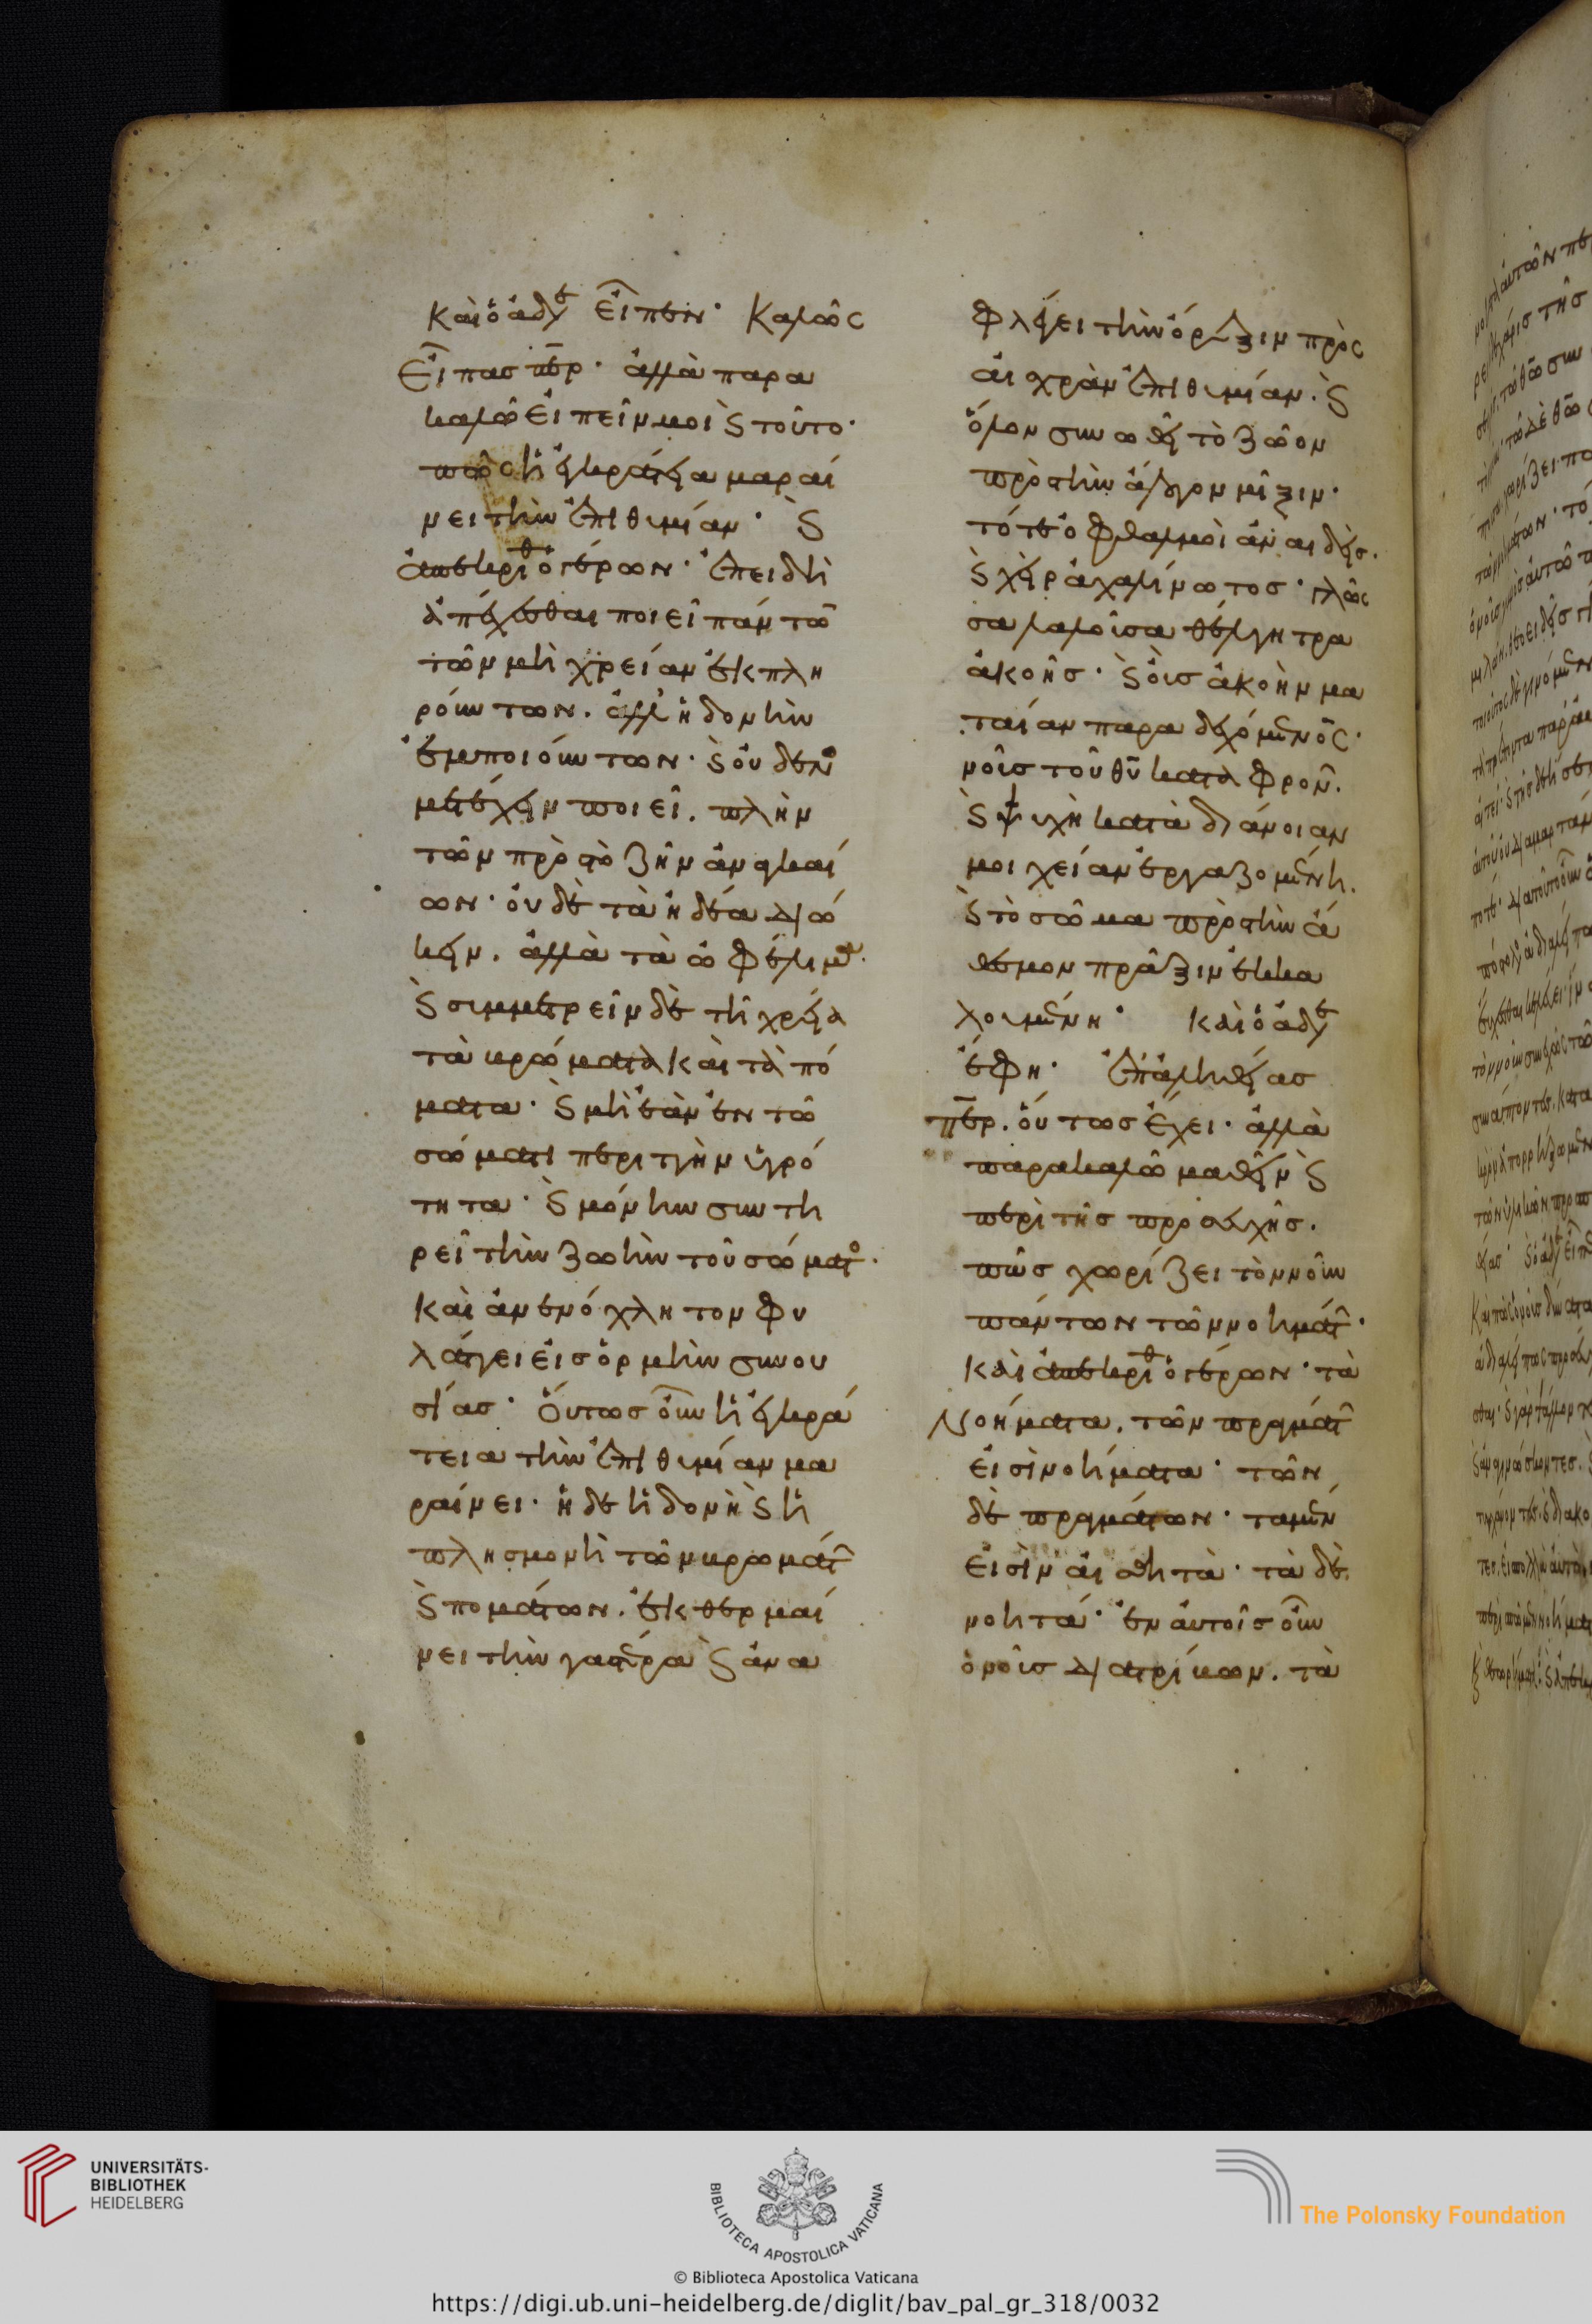 Καὶ ὁ ἀδε εἶπεν· Καλῶς
Εἶπας περ· ἀλλὰ παρα
καλῶ εἰπεῖν μοι ϛ τοῦτο·
πῶς ἡ ἐγκράτεια μαραί
νει τὴν ἐπιθυμίαν· ϛ
ἀπεκρίθ ὁ γέρων· ἐπειδὴ
ἀπέχεσθαι ποιεῖ πάντω
τῶν μὴ χρείαν ἐκπλη
ρούντων. ἀλλ' ἡδονὴν
ἐμποιούντων· ϛ οὐδενο
μετέχειν ποιεῖ. πλὴν
τῶν πρὸς τὸ ζῆν ἀναγκαί
ων· οὐδὲ τὰ ἡδέα διώ
κειν. ἀλλὰ τὰ ὠφέλιμα·
ϛ συμμετρεῖν δὲ τῆ χρεία
τὰ βρώματα καὶ τὰ πό
ματα· ϛ μὴ ἐὰν ἐν τῶ
σώματι περιττὴν ὑγρό
τητα· ϛ μόνην συντη
ρεῖ τὴν ζωὴν τοῦ σώματο·
Καὶ ἀνενόχλητον φυ
λάττει εἰς ὁρμὴν συνου
σίας· Οὕτως οὖν ἡ ἐγκρά
τεια τὴν ἐπιθυμίαν μα
ραίνει· ἡ δὲ ἡδονὴ ϛ ἡ
πλησμονὴ τῶν βρωμάτ
ϛ πομάτων. ἐκθερμαί
νει τὴν γαστέρα ϛ ἀνα
φλέγει τὴν ὄρεξιν πρὸς
αἰσχρὰν ἐπιθυμίαν. ϛ
ὅλον συνωθεῖ τὸ ζῶον
πρὸς τὴν ἄλογον μίξιν·
τότε ὀφθαλμοὶ ἀναιδεῖς.
ϛ χεὶρ ἀχαλίνωτος· γλῶς
σα λαλοῦσα θέλγητρα
ἀκοῆς· ϛ οὖς ἀκοὴν μα
ταίαν παραδεχόμενος·
νοῦς τοῦ θυ καταφρον.
ϛ ψυχὴ κατὰ διάνοιαν
μοιχείαν ἐργαζομένη.
ϛ τὸ σῶμα πρὸς τὴν ἄ
θεσμον πρᾶξιν ἐκκα
λουμένη· Καὶ ὁ ἀδε
ἔφη· ἐπ' ἀληθείας
περ. οὕτως ἔχει· ἀλλὰ
παρακαλῶ μαθεῖν ϛ
περὶ τῆς προσευχῆς.
πῶς χωρίζει τὸν νοῦν
πάντων τῶν νοημάτ·
Καὶ ἀπεκρίθ ὁ γέρων· τὰ
Νοήματα. τῶν πραγμάτ
εἰσὶ νοήματα· τῶν
δὲ πραγμάτων· τα μὲν
εἰσὶν αἰσθητὰ· τὰ δὲ
νοητά· ἐν αὐτοῖς οὖν
ὁ νοῦς διατρίβων. τὰ
UNIVERSITÄTS-
BIBLIOTHEK
HEIDELBERG
BIBLIOTECA APOSTOLICA VATICANA
The Polonsky Foundation
© Biblioteca Apostolica Vaticana
https://digi.ub.uni-heidelberg.de/diglit/bav_pal_gr_318/0032